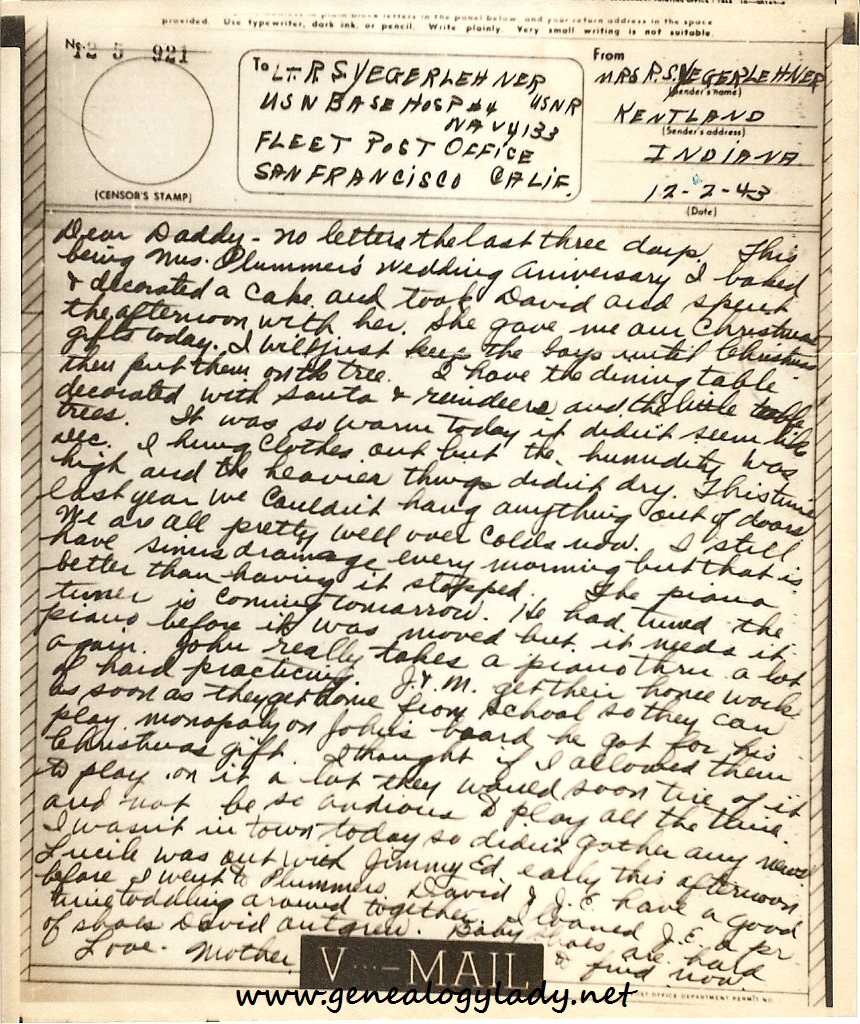 provided. Use typewriter, dark ink, or pencil. Write plainly. Very small writing is not suitable.
No.
125 921
(CENSOR'S STAMP)
To LT. R S YEGERLEHNER
USN BASE HOSP #4 USNR
NAVY 133
FLEET POST OFFICE
SAN FRANCISCO CALIF.
From
MRS R.S. YEGERLEHNER
(Sender's name)
KENTLAND
(Sender's address)
INDIANA
12-2-43
(Date)
Dear Daddy - no letters the last three days. This
being Mrs. Plummer's Wedding Anniversary I baked
& decorated a cake and took David and spent
the afternoon with her. She gave me our Christmas
gifts today. I will just keep the boys until Christmas
then put them on the tree. I have the dining table
decorated with Santa & reindeers and the little
trees. It was so warm today it didn't seem like
Dec. I hung clothes out but the humidity was
high and the heavier things didn't dry. This time
last year we couldn't hang anything out of doors
We are all pretty well over colds now. I still
have sinus dramage every morning but that is
better than having it stopped. The piano
tuner is coming tomorrow. He had tuned the
piano before it was moved but it needs it
again. John really takes a piano thru a lot
of hard practicing. J. & M. get their home work
as soon as they get home from school so they can
play monopaly on John's board he got for his
Christmas gift. I thought if I allowed them
to play on it a lot they would soon tire of it
and not be so andious to play all the time.
I wasn't in town today so didn't gather any news
Lucile was out with Jimmy Ed. early this afternoon
before I went to Plummers. David & J.E. have a good
time toddling around together. I loaned J.E. a pr
of shoes David outgrew. Baby shoes are hard
to find now.
Love - Mother.
V···—MAIL
POST OFFICE DEPARTMENT PERMIT NO.
www.genealogylady.net